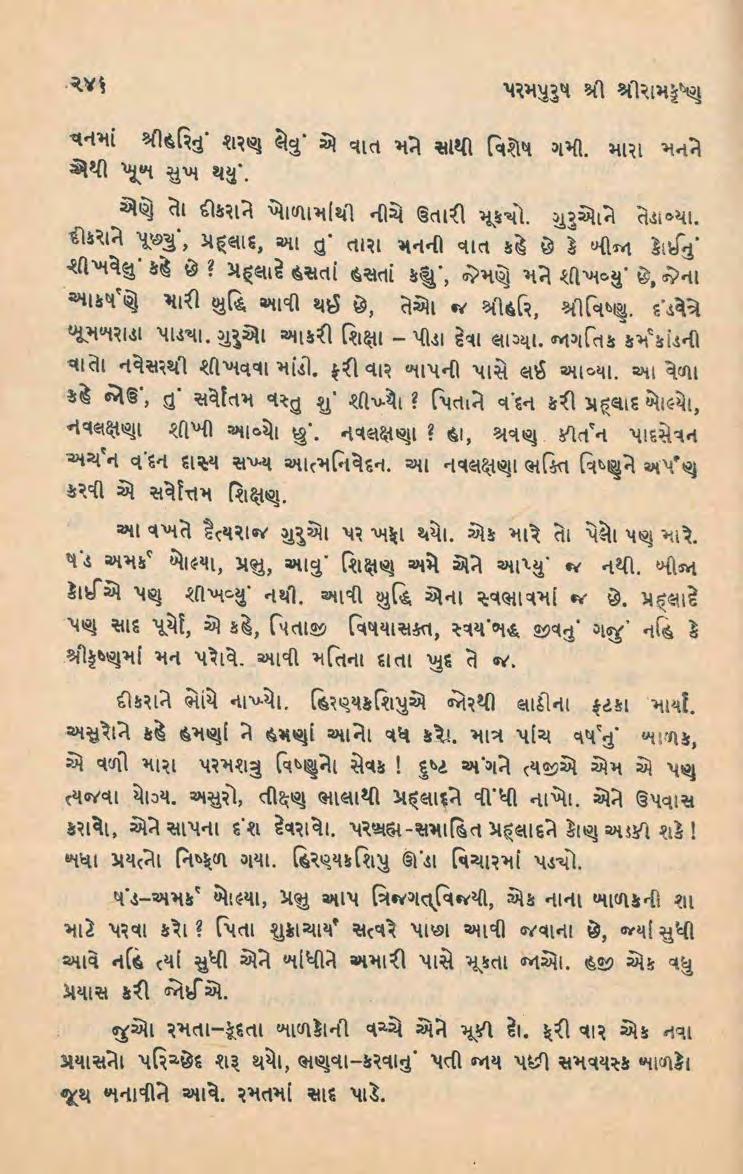 ૨૪૬ પરમપુરુષ શ્રી શ્રીરામકૃષ્ણ
વનમાં શ્રીહરિનું શરણ લેવું એ વાત મને સાથી વિશેષ ગમી. મારા મનને
એથી ખૂબ સુખ થયું.
એણે તો દીકરાને ખોળામાંથી નીચે ઉતારી મૂકયો. ગુરુઓને તેડાવ્યા.
દીકરાને પૂછયું, પ્રહ્‌લાદ, આ તું તારા મનની વાત કહે છે કે બીજા કોઈનું
શીખવેલું કહે છે ? પ્રહ્‌લાદે હસતાં હસતાં કહ્યું, જેમણે મને શીખવ્યું છે, જેના
આકર્ષણે મારી બુદ્ધિ આવી થઈ છે, તેઓ જ શ્રીહરિ, શ્રીવિષ્ણુ. દંડવેત્રે
બૂમબરાડા પાડયા. ગુરુઓ આકરી શિક્ષા – પીડા દેવા લાગ્યા. જાગતિક કર્મકાંડની
વાતો નવેસરથી શીખવવા માંડી. ફરી વાર બાપની પાસે લઈ આવ્યા. આ વેળા
કહે જોઉં, તું સર્વોતમ વસ્તુ શું શીખ્યો ? પિતાને વંદન કરી પ્રહ્‌લાદ બોલ્યો,
નવલક્ષણા શીખી આવ્યો છું. નવલક્ષણા ? હા, શ્રવણ કીર્તન પાદસેવન
અર્ચન વંદન દાસ્ય સખ્ય આત્મનિવેદન. આ નવલક્ષણા ભક્તિ વિષ્ણુને અર્પણ
કરવી એ સર્વોત્તમ શિક્ષણ.
આ વખતે દૈત્યરાજ ગુરુઓ પર ખફા થયો. એક મારે તો પેલો પણ મારે.
ષંડ અમર્ક બોલ્યા, પ્રભુ, આવું શિક્ષણ અમે એને આપ્યું જ નથી. બીજા
કોઈએ પણ શીખવ્યું નથી. આવી બુદ્ધિ એના સ્વભાવમાં જ છે. પ્રહ્‌લાદે
પણ સાદ પૂર્યો, એ કહે, પિતાજી વિષયાસક્ત, સ્વયંબદ્ધ જીવનું ગજું નહિ કે
શ્રીકૃષ્ણમાં મન પરોવે. આવી મતિના દાતા ખુદ તે જ.
દીકરાને ભોંયે નાખ્યો. હિરણ્યકશિપુએ જોરથી લાઠીના ફટકા માર્યા.
અસુરોને કહે હમણાં ને હમણાં આનો વધ કરો. માત્ર પાંચ વર્ષનું બાળક,
એ વળી મારા પરમશત્રુ વિષ્ણુનો સેવક ! દુષ્ટ અંગને ત્યજીએ એમ એ પણ
ત્યજવા યોગ્ય. અસુરો, તીક્ષ્ણ ભાલાથી પ્રહ્‌લાદને વીંધી નાખો. એને ઉપવાસ
કરાવો, એને સાપના દંશ દેવરાવો. પરબ્રહ્મ-સમાહિત પ્રહ્‌લાદને કોણ અડકી શકે !
બધા પ્રયત્નો નિષ્ફળ ગયા. હિરણ્યકશિપુ ઊંડા વિચારમાં પડચો.
ષંડ–અમર્ક બોલ્યા, પ્રભુ આપ ત્રિજગત્‌વિજયી, એક નાના બાળકની શા
માટે પરવા કરો ? પિતા શુક્રાચાર્ય સત્વરે પાછા આવી જવાના છે, જ્યાં સુધી
આવે નહિ ત્યાં સુધી એને બાંધીને અમારી પાસે મૂકતા જાઓ. હજી એક વધુ
પ્રયાસ કરી જોઈએ.
જુઓ રમતા–કૂદતા બાળકોની વચ્ચે એને મૂકી દો. ફરી વાર એક નવા
પ્રયાસનો પરિચ્છેદ શરૂ થયો, ભણવા–કરવાનું પતી જાય પછી સમવયસ્ક બાળકો
જૂથ બનાવીને આવે. રમતમાં સાદ પાડે.